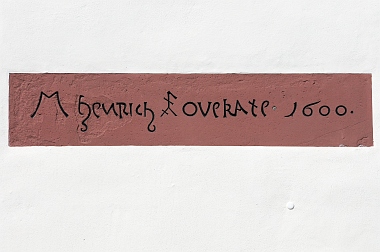 M henrich Loverate 1600.